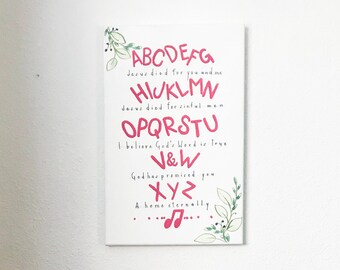 ABCDEFG
Jesus died for you and me
HIJKLMN
Jesus died for sinful men
OPQRSTU
I believe God's Word is true
V&W
God has promised you
XYZ
A home eternally